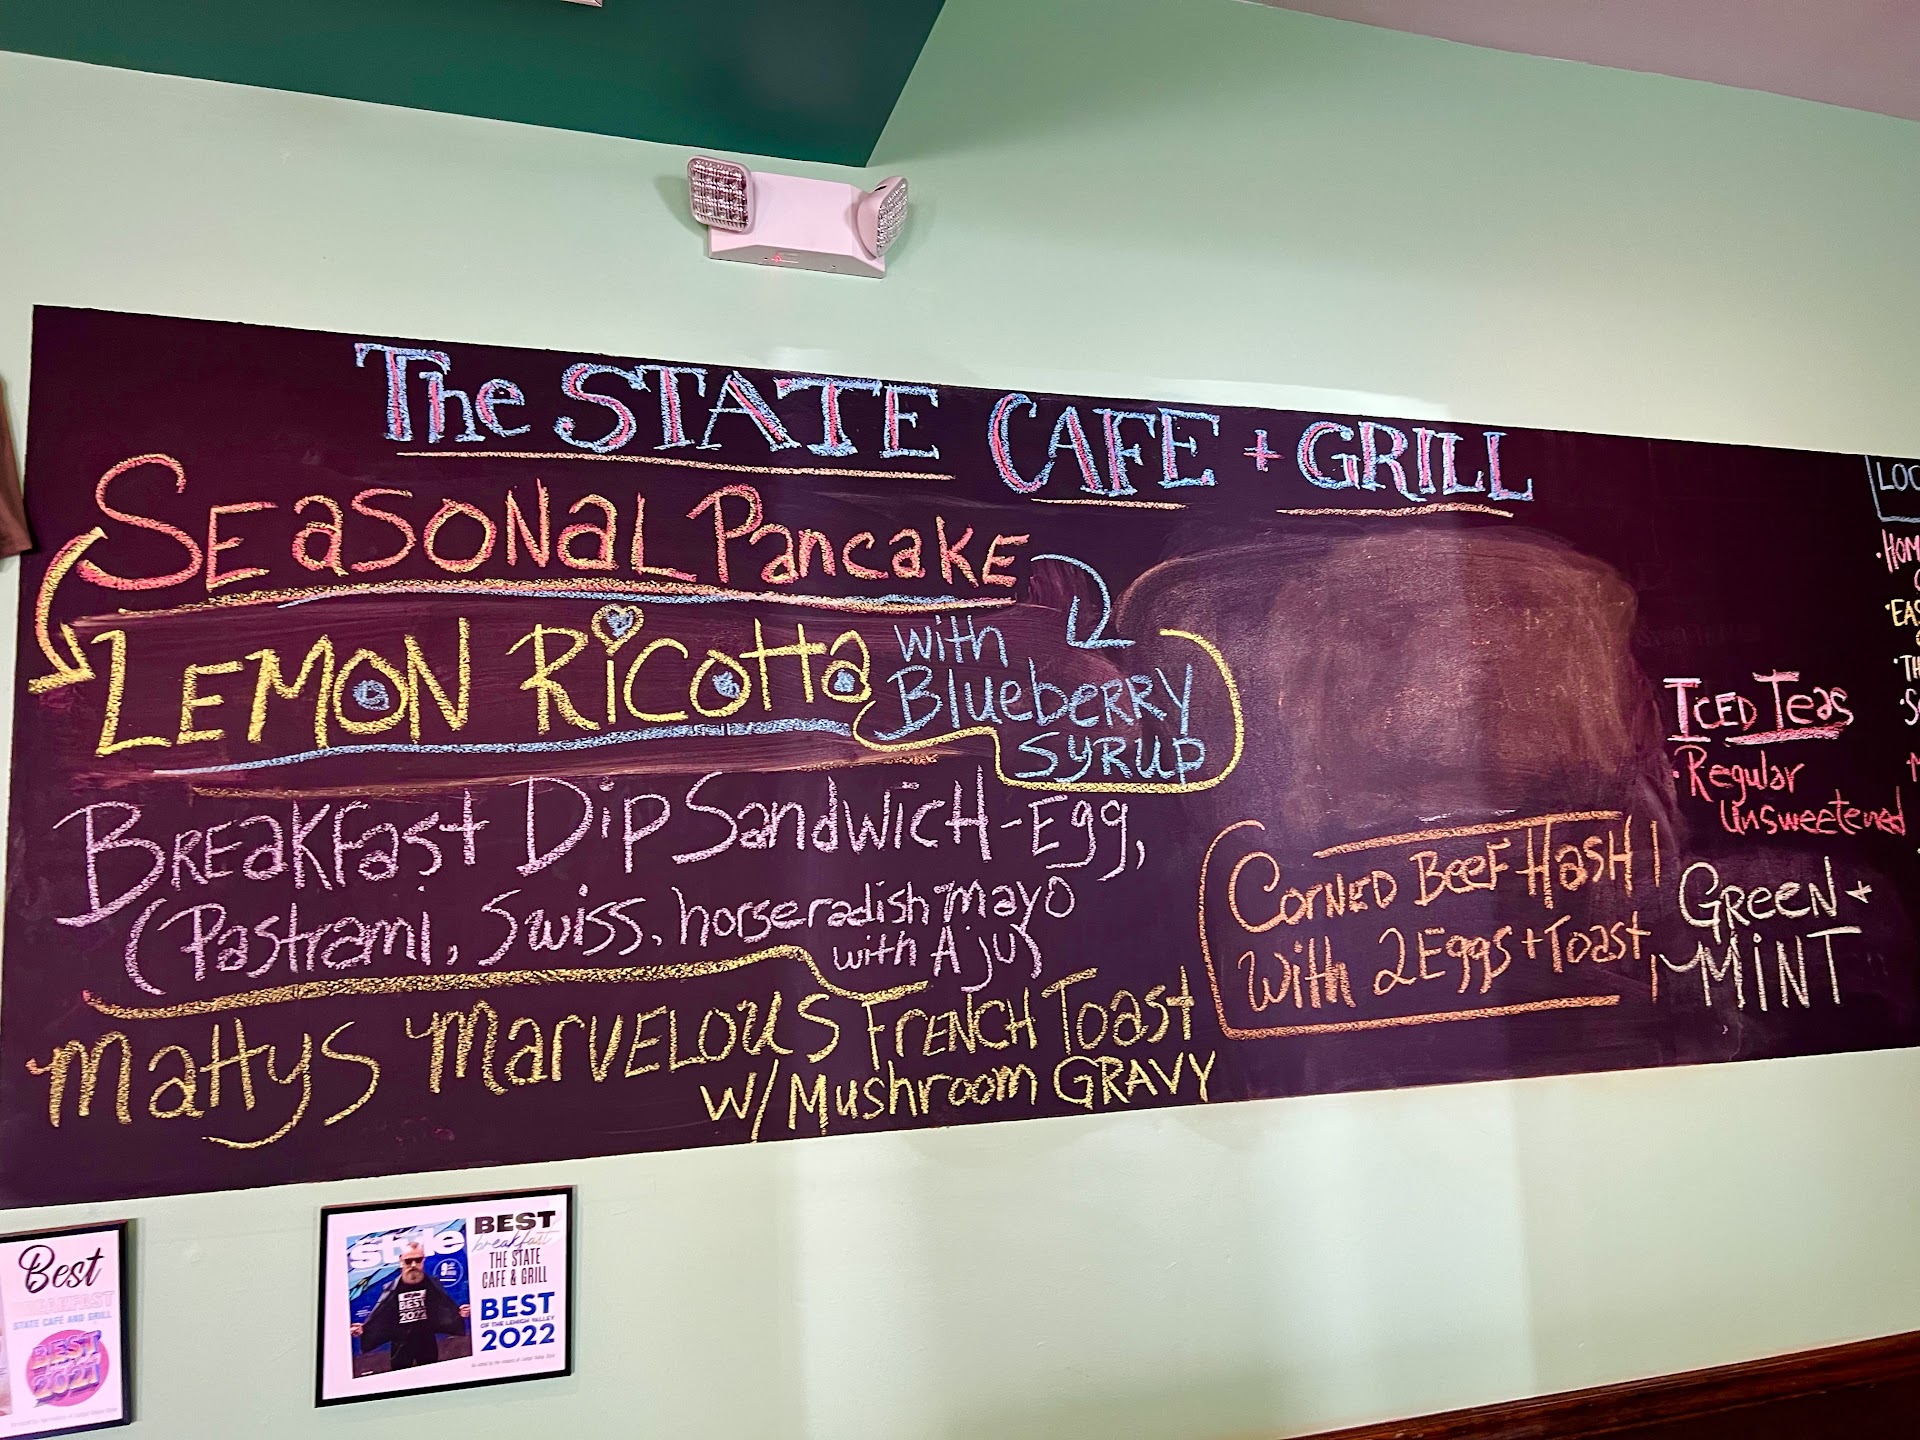 The STATE CAFE + GRILL
SEaSONaL PancaKE
LEMON RiCOtta with
BlueberRY
SYRUP
BREaKFast Dip SandWicH - Egg,
(Pastrami, Swiss, horseradish mayo
with Ajus
Mattys MarVELOUS FRENCH Toast
W/ Mushroom GRAVY
CORNED BEEF HasH
With 2 Eggs + Toast
ICED Teas
• Regular
Unsweetened
GREEN +
MINT
LOC
• HOM
• EAS
• TH
Best
BREAKFAST
STATE CAFÉ AND GRILL
BEST
2021
style
BEST
2022
BEST
breakfast
THE STATE
CAFE & GRILL
BEST
OF THE LEHIGH VALLEY
2022